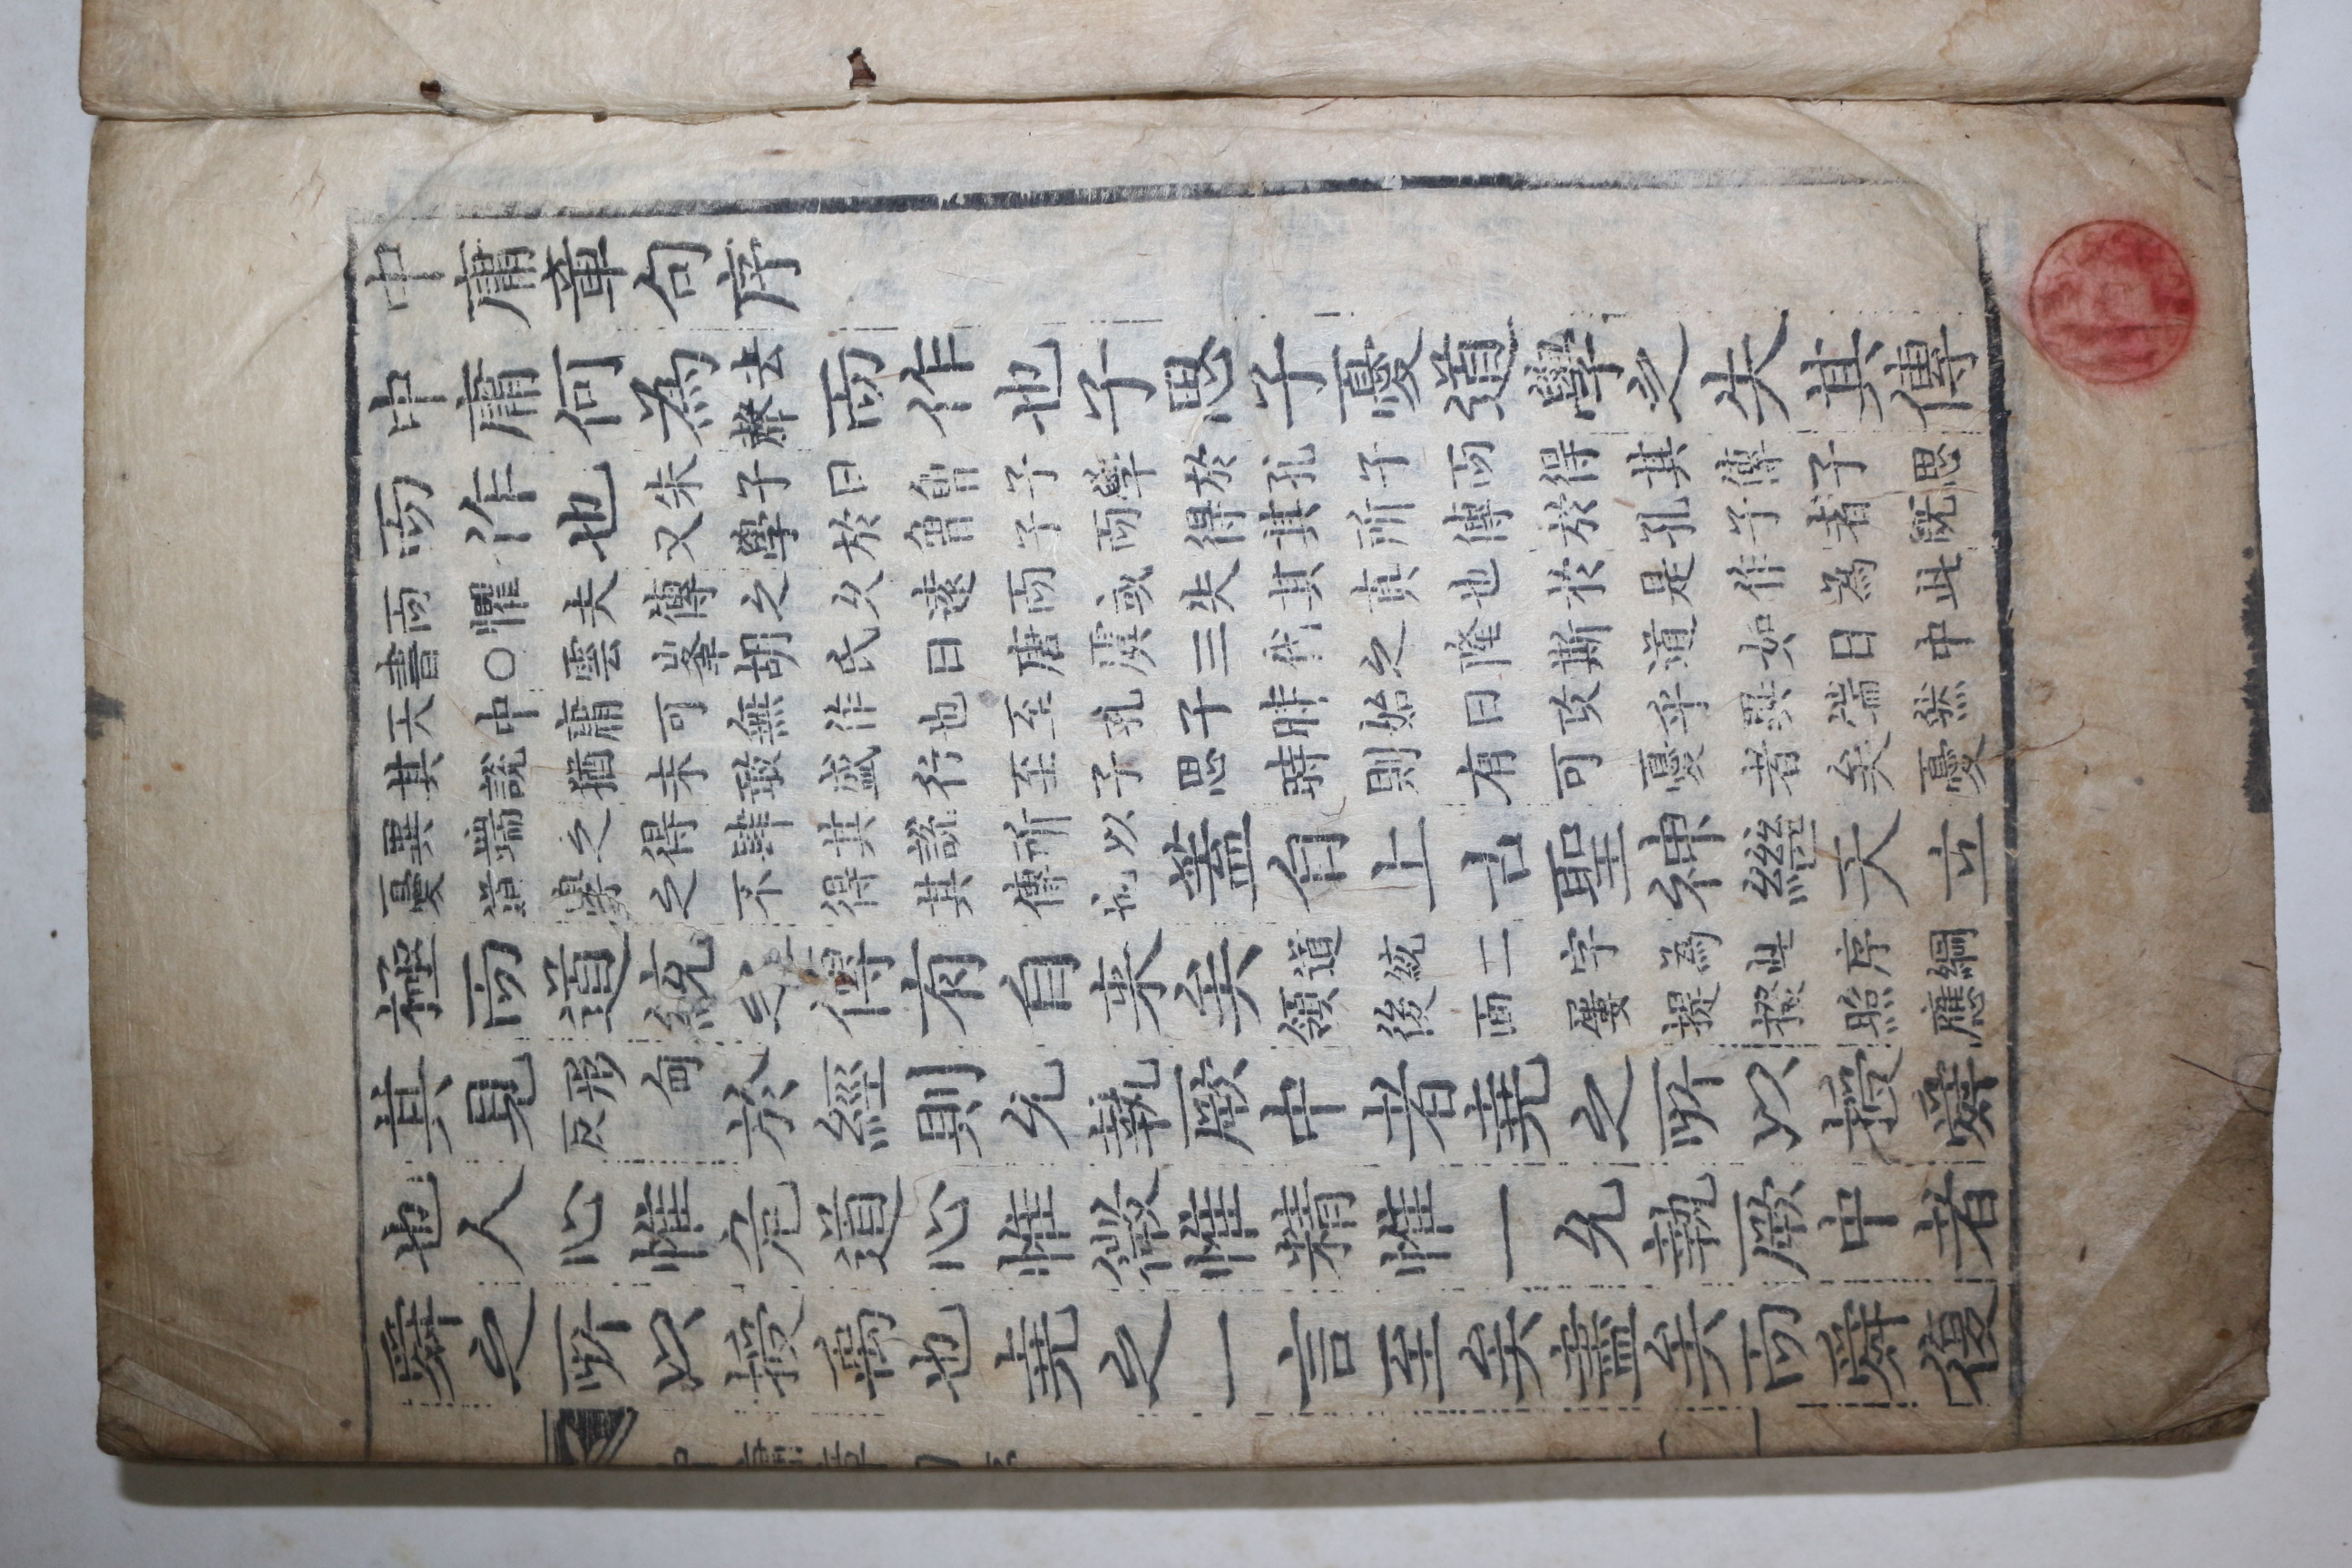 中庸章句序
中庸何為去聲而作也子思子憂道學之失其傳
而作也朱子曰曾子學於孔子而得其傳子思又學於曾子而得其所傳於孔子者既
而懼夫傳之久遠而或失其真也於是作為此書○雲峯胡氏曰唐虞三代之隆斯道如日中
天中庸可無作也至孔子時始曰攻乎異端然其說猶未敢盛行至子思時則有可憂者矣憂
異端之得肆其說所以憂道學之不得其傳也蓋自上古聖神繼天立
極而道統之傳有自来矣道統二字為此序綱領後面屢提掇照應
其見形甸反於經則允執厥中者堯之所以授舜
也人心惟危道心惟微惟精惟一允執厥中者
舜之所以授禹也堯之一言至矣盡矣而舜復